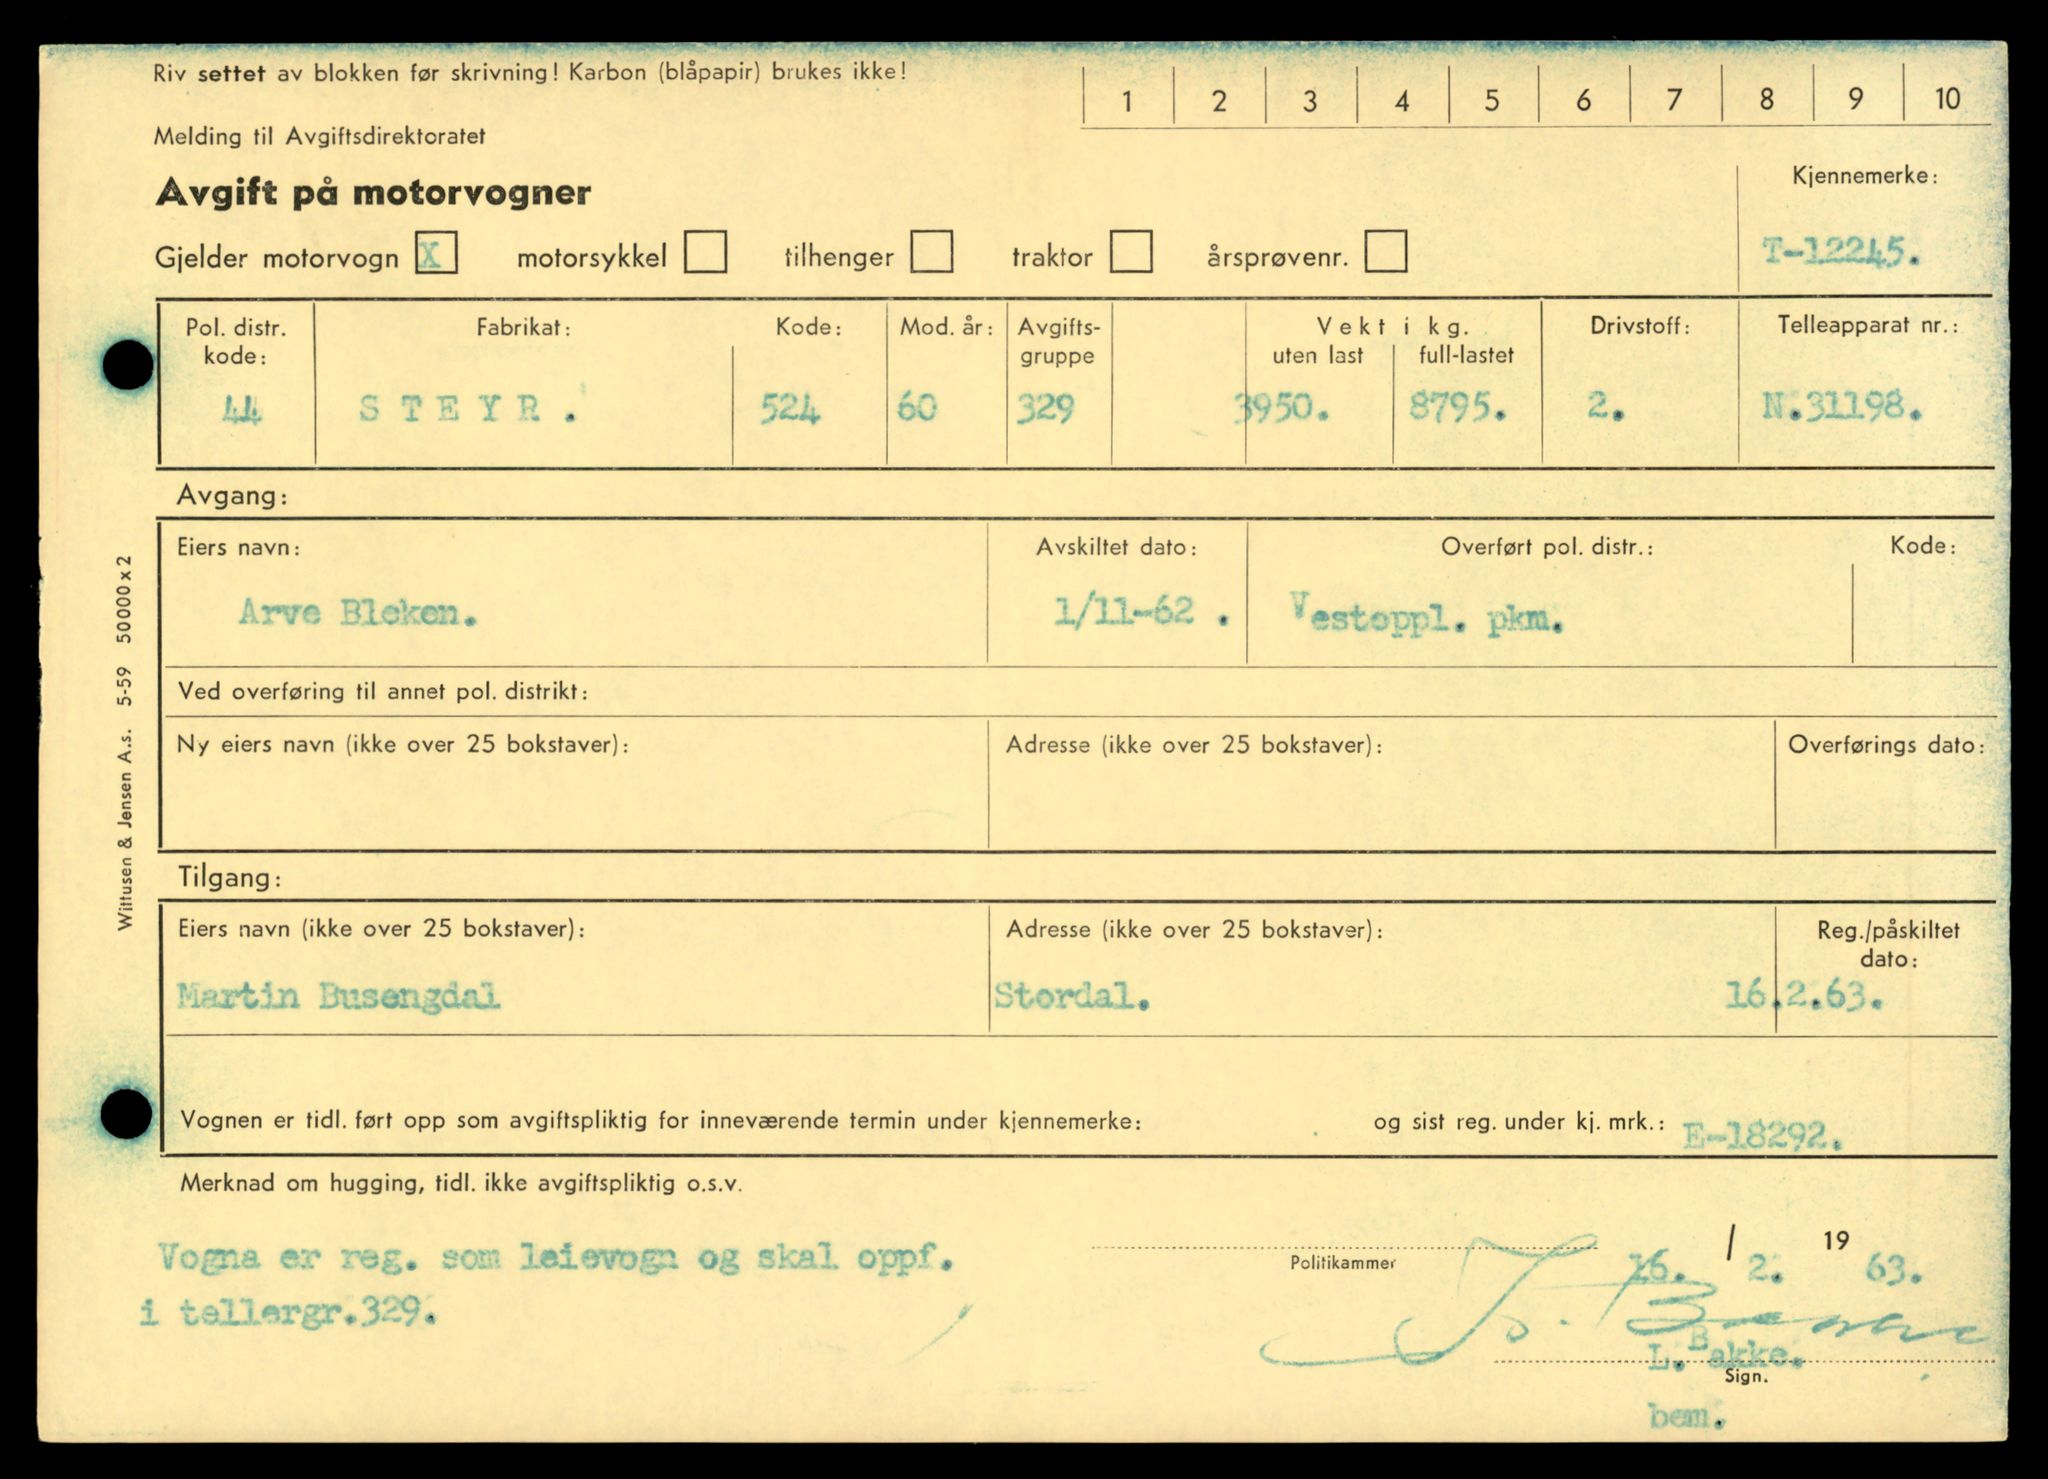 Riv settet av blokken før skrivning! Karbon (blåpapir) brukes ikke!
1 2 3 4 5 6 7 8 9 10
Melding til Avgiftsdirektoratet
Avgift på motorvogner
Kjennemerke:
Gjelder motorvogn X motorsykkel tilhenger traktor årsprøvenr.
T-12245.
Pol. distr. kode: Fabrikat: Kode: Mod. år: Avgifts-gruppe Vekt i kg. uten last full-lastet Drivstoff: Telleapparat nr.:
44 STEYR. 524 60 329 3950. 8795. 2. N.31198.
Avgang:
Eiers navn: Avskiltet dato: Overført pol. distr.: Kode:
Arve Bleken. 1/11-62 . Vestoppl. pkm.
Ved overføring til annet pol. distrikt:
Ny eiers navn (ikke over 25 bokstaver): Adresse (ikke over 25 bokstaver): Overførings dato:
Tilgang:
Eiers navn (ikke over 25 bokstaver): Adresse (ikke over 25 bokstaver): Reg./påskiltet dato:
Martin Busengdal Stordal. 16.2.63.
Vognen er tidl. ført opp som avgiftspliktig for inneværende termin under kjennemerke: og sist reg. under kj. mrk.: E-18292.
Merknad om hugging, tidl. ikke avgiftspliktig o.s.v.
Vogna er reg. som leievogn og skal oppf.
i tellergr.329.
Politikammer 16. / 2. 19 63.
L. Bakke.
Sign.
bem.
Wittusen & Jensen A.s. 5-59 50000 x 2